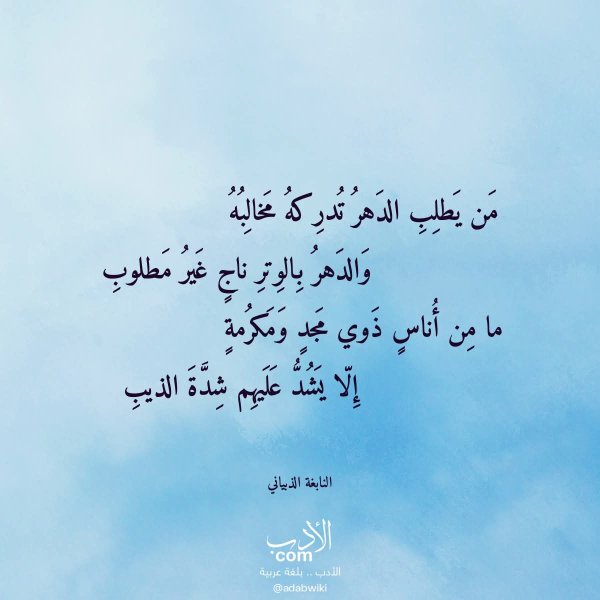 مَن يَطلِبِ الدَهرُ تُدرِكهُ مَخالِبُهُ
وَالدَهرُ بِالوِترِ ناجٍ غَيرُ مَطلوبِ
ما مِن أُناسٍ ذَوي مَجدٍ وَمَكرُمةٍ
إِلّا يَشُدُّ عَلَيهِم شِدَّةَ الذيبِ
النابغة الذبياني
الأدب
com
الأدب .. بلغة عربية
@adabwiki